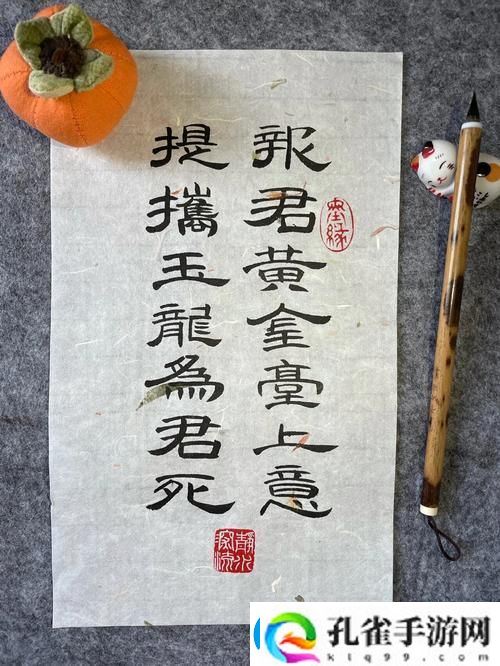 報君黃金臺上意
提攜玉龍為君死
墨緣
靜水深流
孔雀手游网
ktq99.com